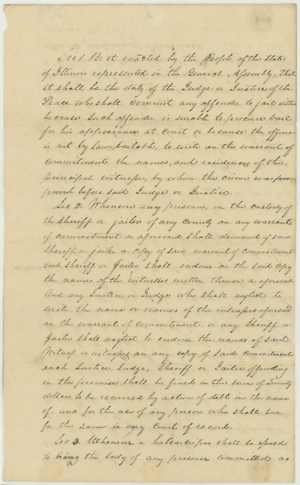 Sec 1. Be it enacted by the People of the State
of Illinois represented in the General Assembly, That
it shall be the duty of the Judge or Justice of the
Peace who shall commit any offender to jail either
because such offender is unable to procure bail
for his appearance at Court or because the offence
is not by law bailable, to write on the warrant of
commitment the names, and residences of the
principal witnesses, by whom the crime was
proved before said Judge or Justice.
Sec 2. Whenever any prisoner, in the custody of
the Sheriff or jailer of any County on any warrant
of commitment as aforesaid shall demand of said
Sheriff or jailer a copy of said warrant of commitment
said Sheriff or Jailer shall endorse on the said copy
the names of the witnesses written thereon as aforesaid
And any Justice or Judge who shall neglect to
write the name or names of the witnesses aforesaid
on the warrant of commitment, or any Sheriff or
Jailer shall neglect to endorse the names of said
Witness or witnesses on any copy of said commitment
each Justice Judge, Sheriff or Jailer offending
in the premises shall be fined in the sum of Twenty
dollars to be recovered by action of debt in the name
of, and for the use of any person who shall sue
for the same in any Court of record.
Sec 3. Whenever a habeas corpus shall be
to bring the body of any prisoner committed as